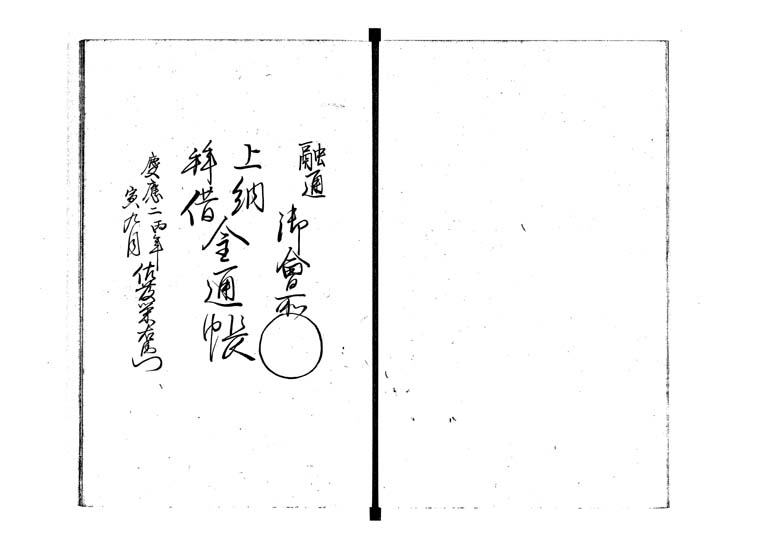 融通
御會所
上納
拝借
金通帳
慶應二丙年
寅九月
佐藤栄右衛門